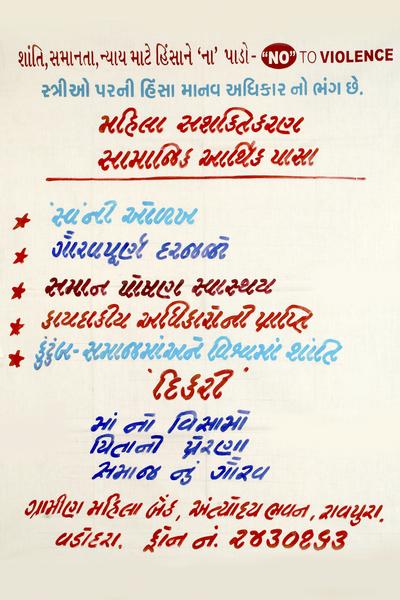 શાંતિ, સમાનતા, ન્યાય માટે હિંસાને ‘ના’ પાડો - “NO” TO VIOLENCE
સ્ત્રીઓ પરની હિંસા માનવ અધિકાર નો ભંગ છે.
મહિલા સશક્તિકરણ
સામાજિક આર્થિક પાસા
'સ્વ'ની ઓળખ
ગૌરવપૂર્ણ દરજ્જો
સમાન પોષણ સ્વાસ્થય
કાયદાકીય અધિકારોની પ્રાપ્તિ
કુંટુંબ- સમાજમાંઅને વિશ્વમાં શાંતિ
'દિકરી'
માં નો વિસામો
પિતાની પ્રેરણા
સમાજ નું ગૌરવ
ગ્રામીણ મહિલા બેંક, અંત્યોદય ભવન, રાવપુરા,
વડોદરા. ફોન નં. ૨૪૩૦૨૬૩